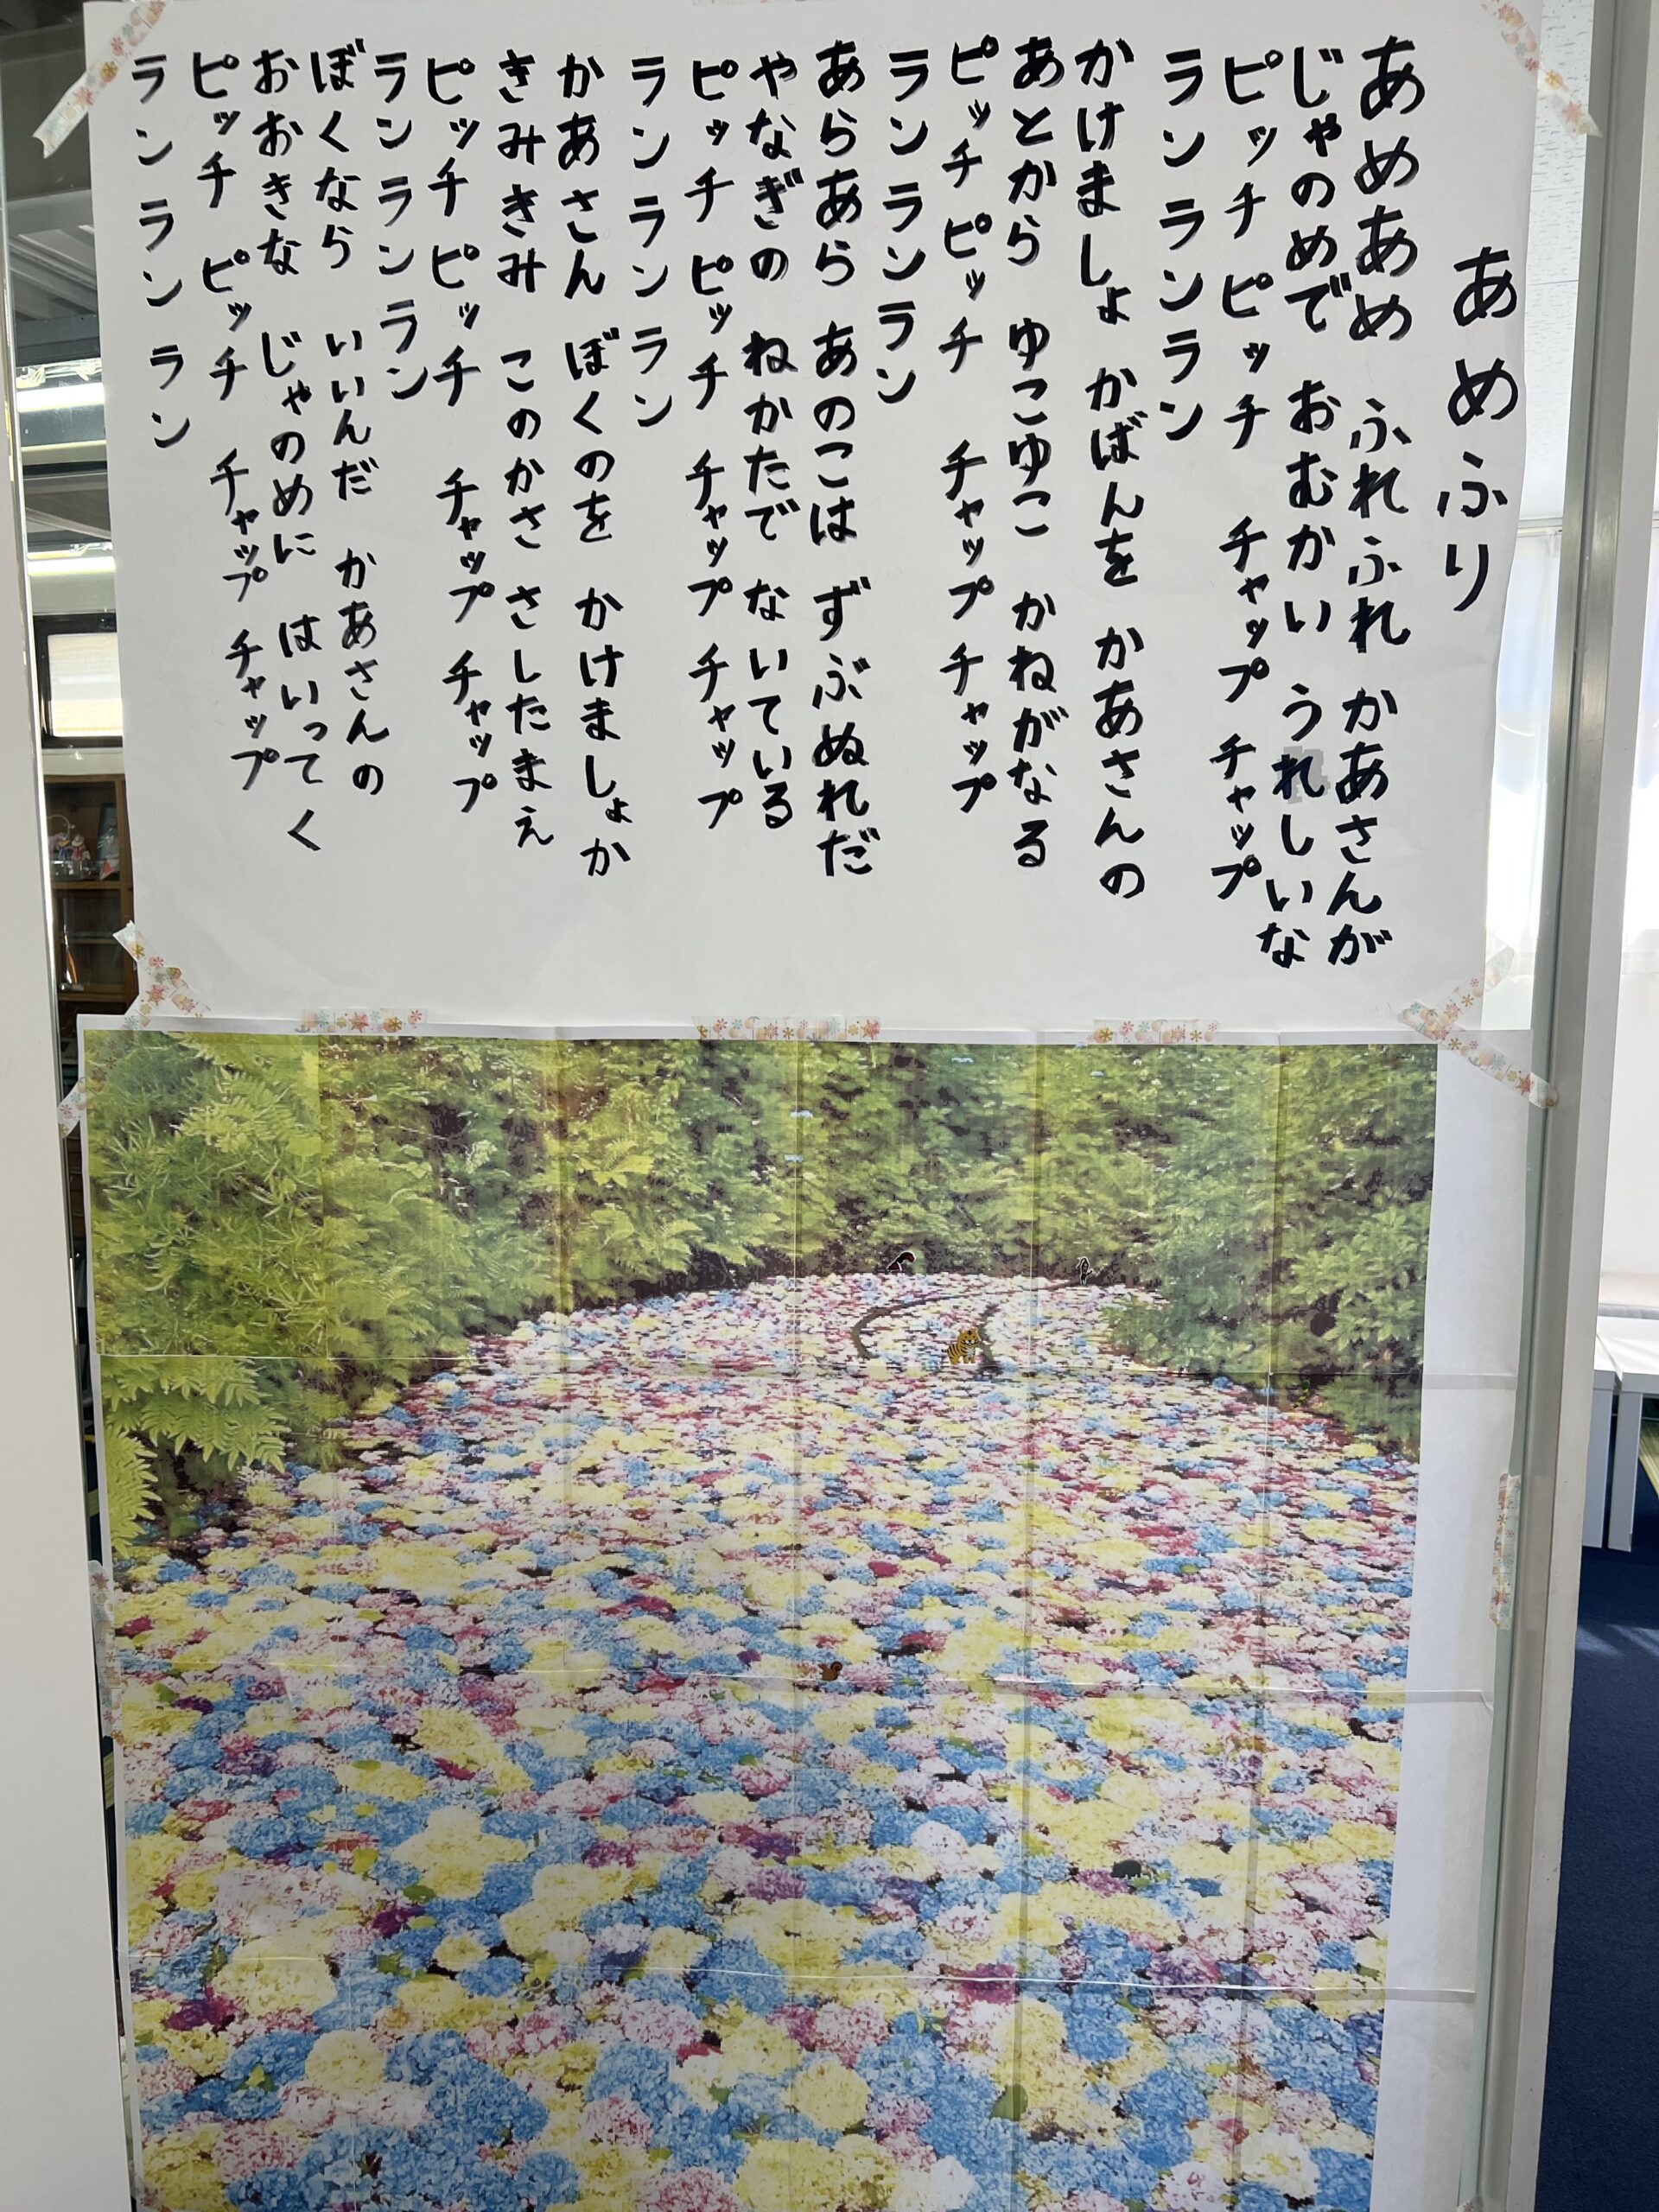 あめふり
あめあめ ふれふれ かあさんが
じゃのめで おむかい うれしいな
ピッチ ピッチ チャップ チャップ
ランランラン
かけましょ かばんを かあさんの
あとから ゆこゆこ かねがなる
ピッチ ピッチ チャップ チャップ
ランランラン
あらあら あのこは ずぶぬれだ
やなぎの ねかたで ないている
ピッチ ピッチ チャップ チャップ
ランランラン
かあさん ぼくのを かけましょか
きみきみ このかさ さしたまえ
ピッチ ピッチ チャップ チャップ
ランランラン
ぼくなら いいんだ かあさんの
おおきな じゃのめに はいってく
ピッチ ピッチ チャップ チャップ
ランランラン